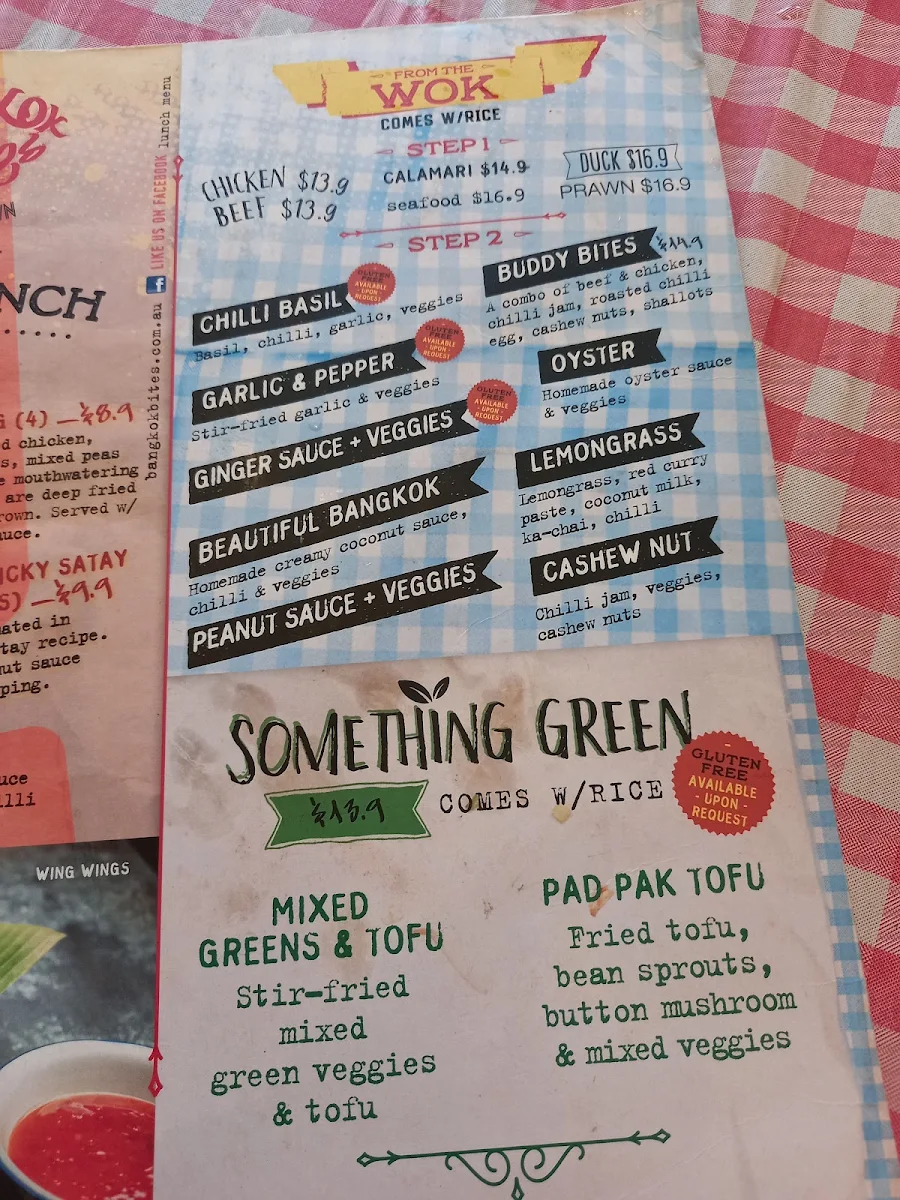 NCH
G (4) — $8.9
d chicken,
s, mixed peas
e mouthwatering
are deep fried
rown. Served w/
uce.
ICKY SATAY
S) — $9.9
ated in
tay recipe.
ut sauce
ping.
uce
illi
WING WINGS
bangkokbites.com.au LIKE US ON FACEBOOK lunch menu
FROM THE
WOK
COMES W/RICE
STEP 1
CHICKEN $13.9
BEEF $13.9
CALAMARI $14.9
seafood $16.9
DUCK $16.9
PRAWN $16.9
STEP 2
CHILLI BASIL
GLUTEN
FREE
AVAILABLE
- UPON -
REQUEST
Basil, chilli, garlic, veggies
GARLIC & PEPPER
GLUTEN
FREE
AVAILABLE
- UPON -
REQUEST
Stir-fried garlic & veggies
GINGER SAUCE + VEGGIES
GLUTEN
FREE
AVAILABLE
- UPON -
REQUEST
BEAUTIFUL BANGKOK
Homemade creamy coconut sauce,
chilli & veggies
PEANUT SAUCE + VEGGIES
BUDDY BITES $14.9
A combo of beef & chicken,
chilli jam, roasted chilli
egg, cashew nuts, shallots
OYSTER
Homemade oyster sauce
& veggies
LEMONGRASS
Lemongrass, red curry
paste, coconut milk,
ka-chai, chilli
CASHEW NUT
Chilli jam, veggies,
cashew nuts
SOMETHING GREEN
$13.9 COMES W/RICE
GLUTEN
FREE
AVAILABLE
- UPON -
REQUEST
MIXED
GREENS & TOFU
Stir-fried
mixed
green veggies
& tofu
PAD PAK TOFU
Fried tofu,
bean sprouts,
button mushroom
& mixed veggies